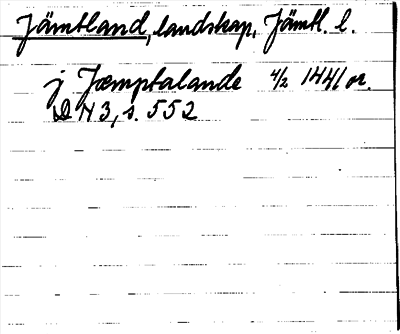 Jämtland, landskap, Jämtl. l.
j Jæmptalande 4/2 1441 or.
D N 3, s. 552